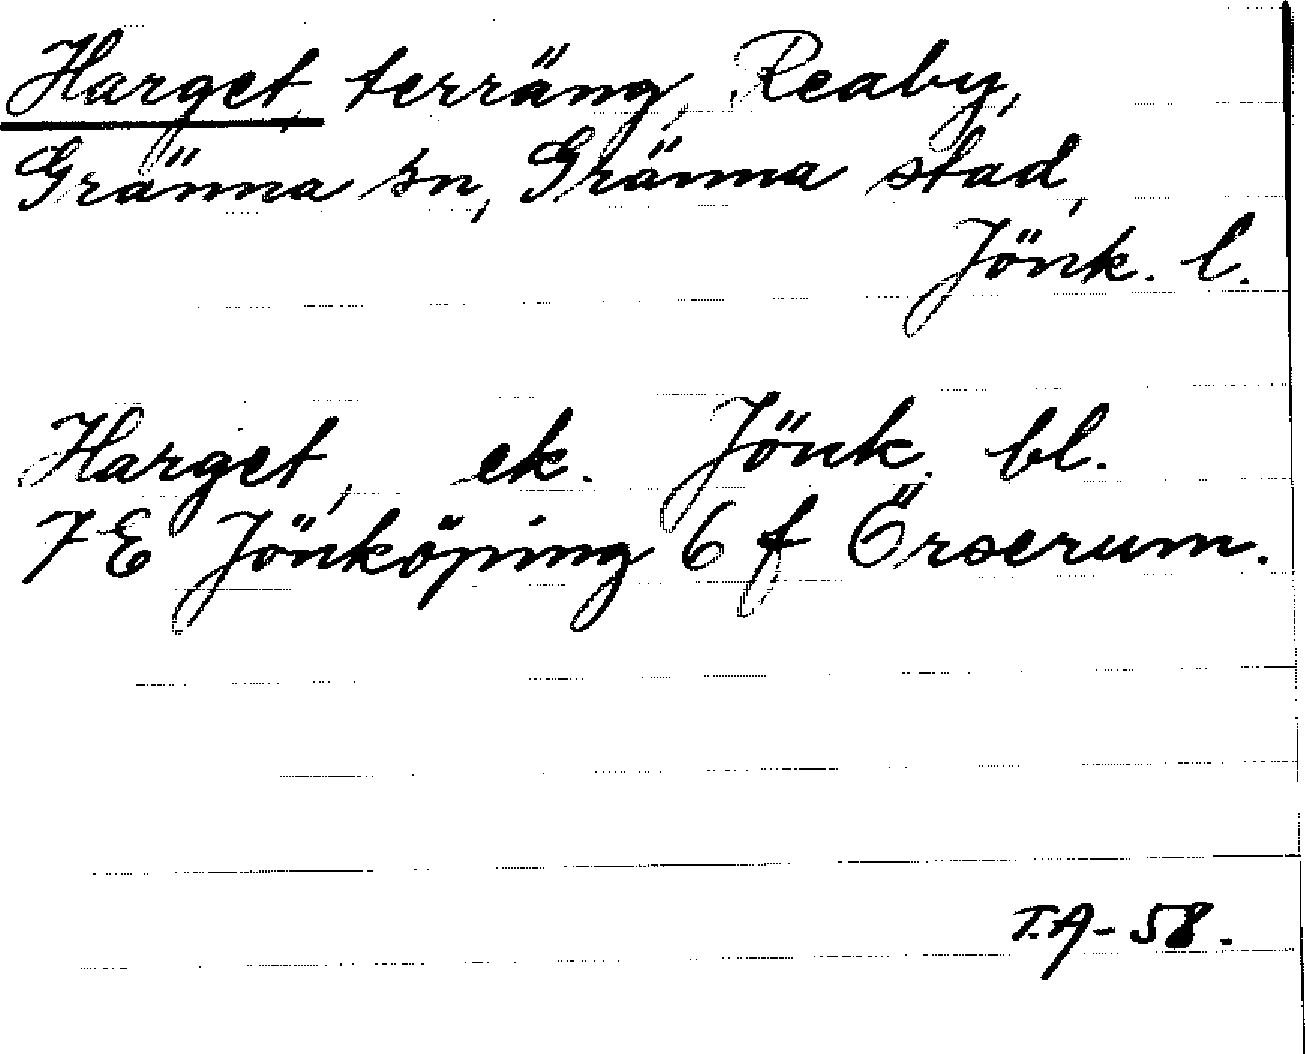 Harget, terräng, Reaby,
Gränna sn, Gränna stad,
Jönk. l.
Harget, ek. Jönk. bl.
7 E Jönköping 6 f Örserum.
T.A-58.